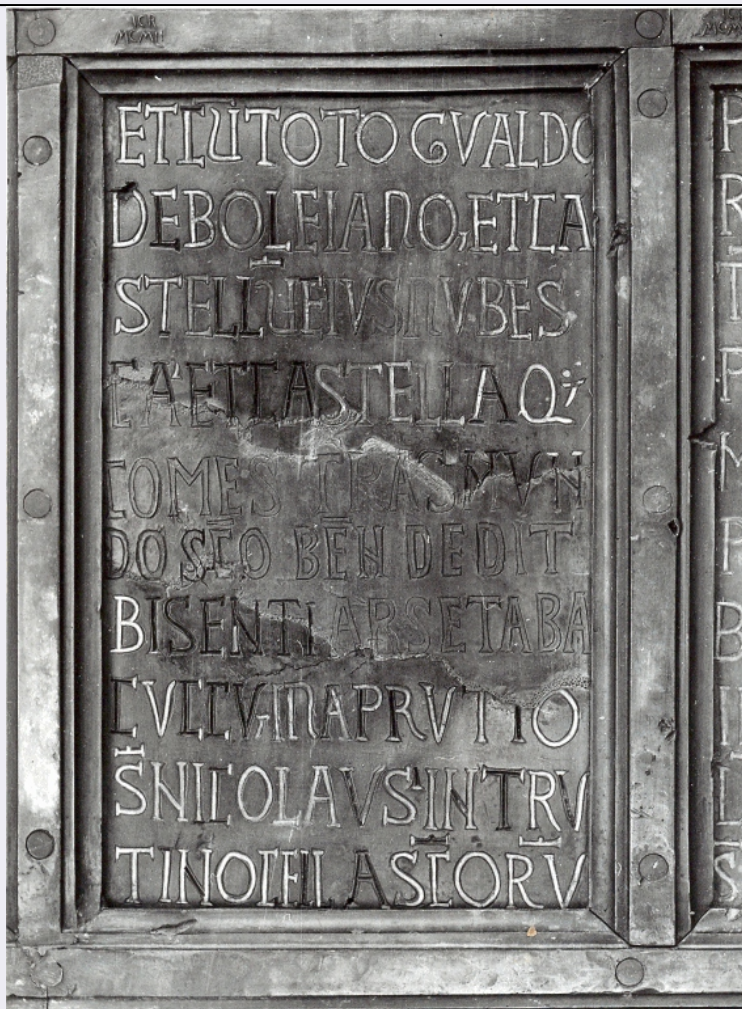 VCR
MCMLI
ET CŪ TOTO GVALDO
DE BOLEIANO, ET CA
STELLŪ EIVS NVBES
EA ET CASTELLA Q;
COMES TRĀSMVN
DO SC̄O BEN̄ DEDIT
BISENTI ARSETA BA
CVCCV, IN APRVTIO
S̄ NICOLAVS IN TRV
TINO CELLA SC̄ORV̄
P
R
T
P
M
P
B
L
S